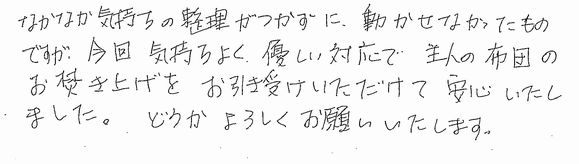 なかなか気持ちの整理がつかずに、動かせなかったもの
ですが、今回 気持ちよく、優しい対応で 主人の布団の
お焚き上げを お引き受けいただけて 安心いたし
ました。 どうか よろしくお願いいたします。